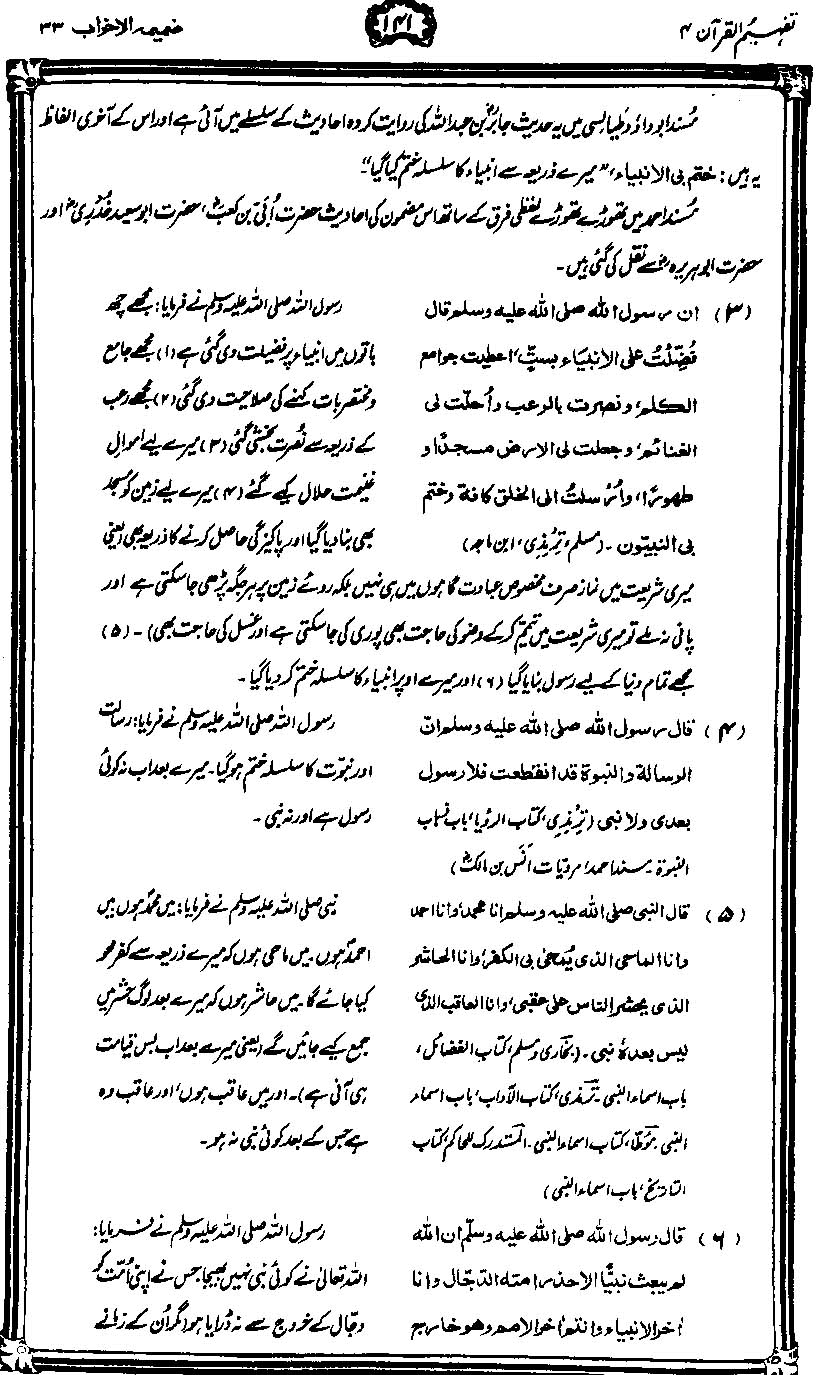 تفہیم القرآن ۴
۱۴۱
ضمیمہ الاحزاب ۳۳
مُسند ابو داؤد طیالسی میں یہ حدیث جابرؓ بن عبداللہ کی روایت کردہ احادیث کے سلسلے میں آئی ہے اور اس کے آخری الفاظ
یہ ہیں: ختم بی الانبیاء، ”میرے ذریعہ سے انبیاء کا سلسلہ ختم کیا گیا“۔
مُسند احمد میں تھوڑے تھوڑے لفظی فرق کے ساتھ اس مضمون کی احادیث حضرت اُبَیّ بن کعبؓ، حضرت ابو سعید خُدْرِیؓ اور
حضرت ابوہریرہؓ سے نقل کی گئی ہیں۔
(۳) ان رسول الله صلى الله عليه وسلم قال
فُضِّلْتُ على الانبياء بستٍّ، اعطيت جوامع
الكلم، ونصرت بالرعب وأُحلّت لى
الغنائم، وجعلت لى الارض مسجدًا و
طهورًا، وأُرسلتُ الى الخلق كافة وختم
بى النبيّون۔ (مسلم، ترمذی، ابن ماجہ)
رسول اللہ صلی اللہ علیہ وسلم نے فرمایا: مجھے چھ
باتوں میں انبیاء پر فضیلت دی گئی ہے (۱) مجھے جامع
و مختصر بات کہنے کی صلاحیت دی گئی (۲) مجھے رعب
کے ذریعہ سے نُصرت بخشی گئی (۳) میرے لیے اموالِ
غنیمت حلال کیے گئے (۴) میرے لیے زمین کو مسجد
بھی بنا دیا گیا اور پاکیزگی حاصل کرنے کا ذریعہ بھی (یعنی
میری شریعت میں نماز صرف مخصوص عبادت گاہوں میں ہی نہیں بلکہ روئے زمین پر ہر جگہ پڑھی جاسکتی ہے اور
پانی نہ ملے تو میری شریعت میں تیمّم کرکے وضو کی حاجت بھی پوری کی جاسکتی ہے اور غسل کی حاجت بھی)۔ (۵)
مجھے تمام دنیا کے لیے رسول بنایا گیا (۶) اور میرے اوپر انبیاء کا سلسلہ ختم کر دیا گیا۔
(۴) قال رسول الله صلى الله عليه وسلم انّ
الرسالة والنبوة قد انقطعت فلا رسول
بعدى ولا نبى (ترمذی، کتاب الرؤیا، باب ذہاب
النبوۃ۔ مسند احمد، مرویات انَس بن مالکؓ)
رسول اللہ صلی اللہ علیہ وسلم نے فرمایا: رسالت
اور نبوّت کا سلسلہ ختم ہو گیا۔ میرے بعد اب نہ کوئی
رسول ہے اور نہ نبی۔
(۵) قال النبى صلى الله عليه وسلم انا محمد، وانا احمد
وانا الماحى الذى يُمحى بى الكفر، وانا الحاشر
الذى يحشر الناس على عقبى، وانا العاقب الذى
ليس بعدهٗ نبى۔ (بخاری و مسلم، کتاب الفضائل،
باب اسماء النبی۔ ترمذی، کتاب الآداب، باب اسماء
النبی۔ مُوطّا، کتاب اسماء النبی۔ المستدرک للحاکم، کتاب
التاریخ، باب اسماء النبی)
نبی صلی اللہ علیہ وسلم نے فرمایا: میں محمدؐ ہوں میں
احمدؐ ہوں۔ میں ماحی ہوں کہ میرے ذریعہ سے کفر محو
کیا جائے گا۔ میں حاشر ہوں کہ میرے بعد لوگ حشر میں
جمع کیے جائیں گے (یعنی میرے بعد اب بس قیامت
ہی آنی ہے)۔ اور میں عاقب ہوں، اور عاقب وہ
ہے جس کے بعد کوئی نبی نہ ہو۔
(۶) قال رسول الله صلى الله عليه وسلّم ان الله
لم يبعث نبيًّا الا حذر امته الدجّال وانا
اٰخر الانبياء وانتم اٰخر الامم وهو خارج
رسول اللہ صلی اللہ علیہ وسلم نے فرمایا:
اللہ تعالیٰ نے کوئی نبی نہیں بھیجا جس نے اپنی اُمّت کو
دجّال کے خروج سے نہ ڈرایا ہو (مگر اُن کے زمانے